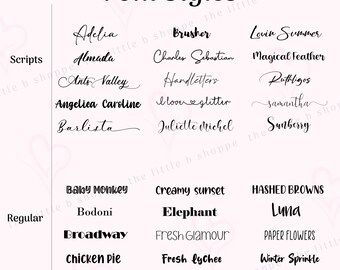 Font Styles
Scripts
Adelia Brusher Lovin Summer
Almada Charles Sebastian Magical Feather
Arts Valley Handletters Ruthligos
Angelica Caroline I love glitter samantha
Barlista Juliette Michel Sunberry
Regular
Baby Monkey Creamy Sunset HASHED BROWNS
Bodoni Elephant Luna
Broadway Fresh Glamour PAPER FLOWERS
Chicken Pie Fresh Lychee Winter Sprinkle
the little b shoppe